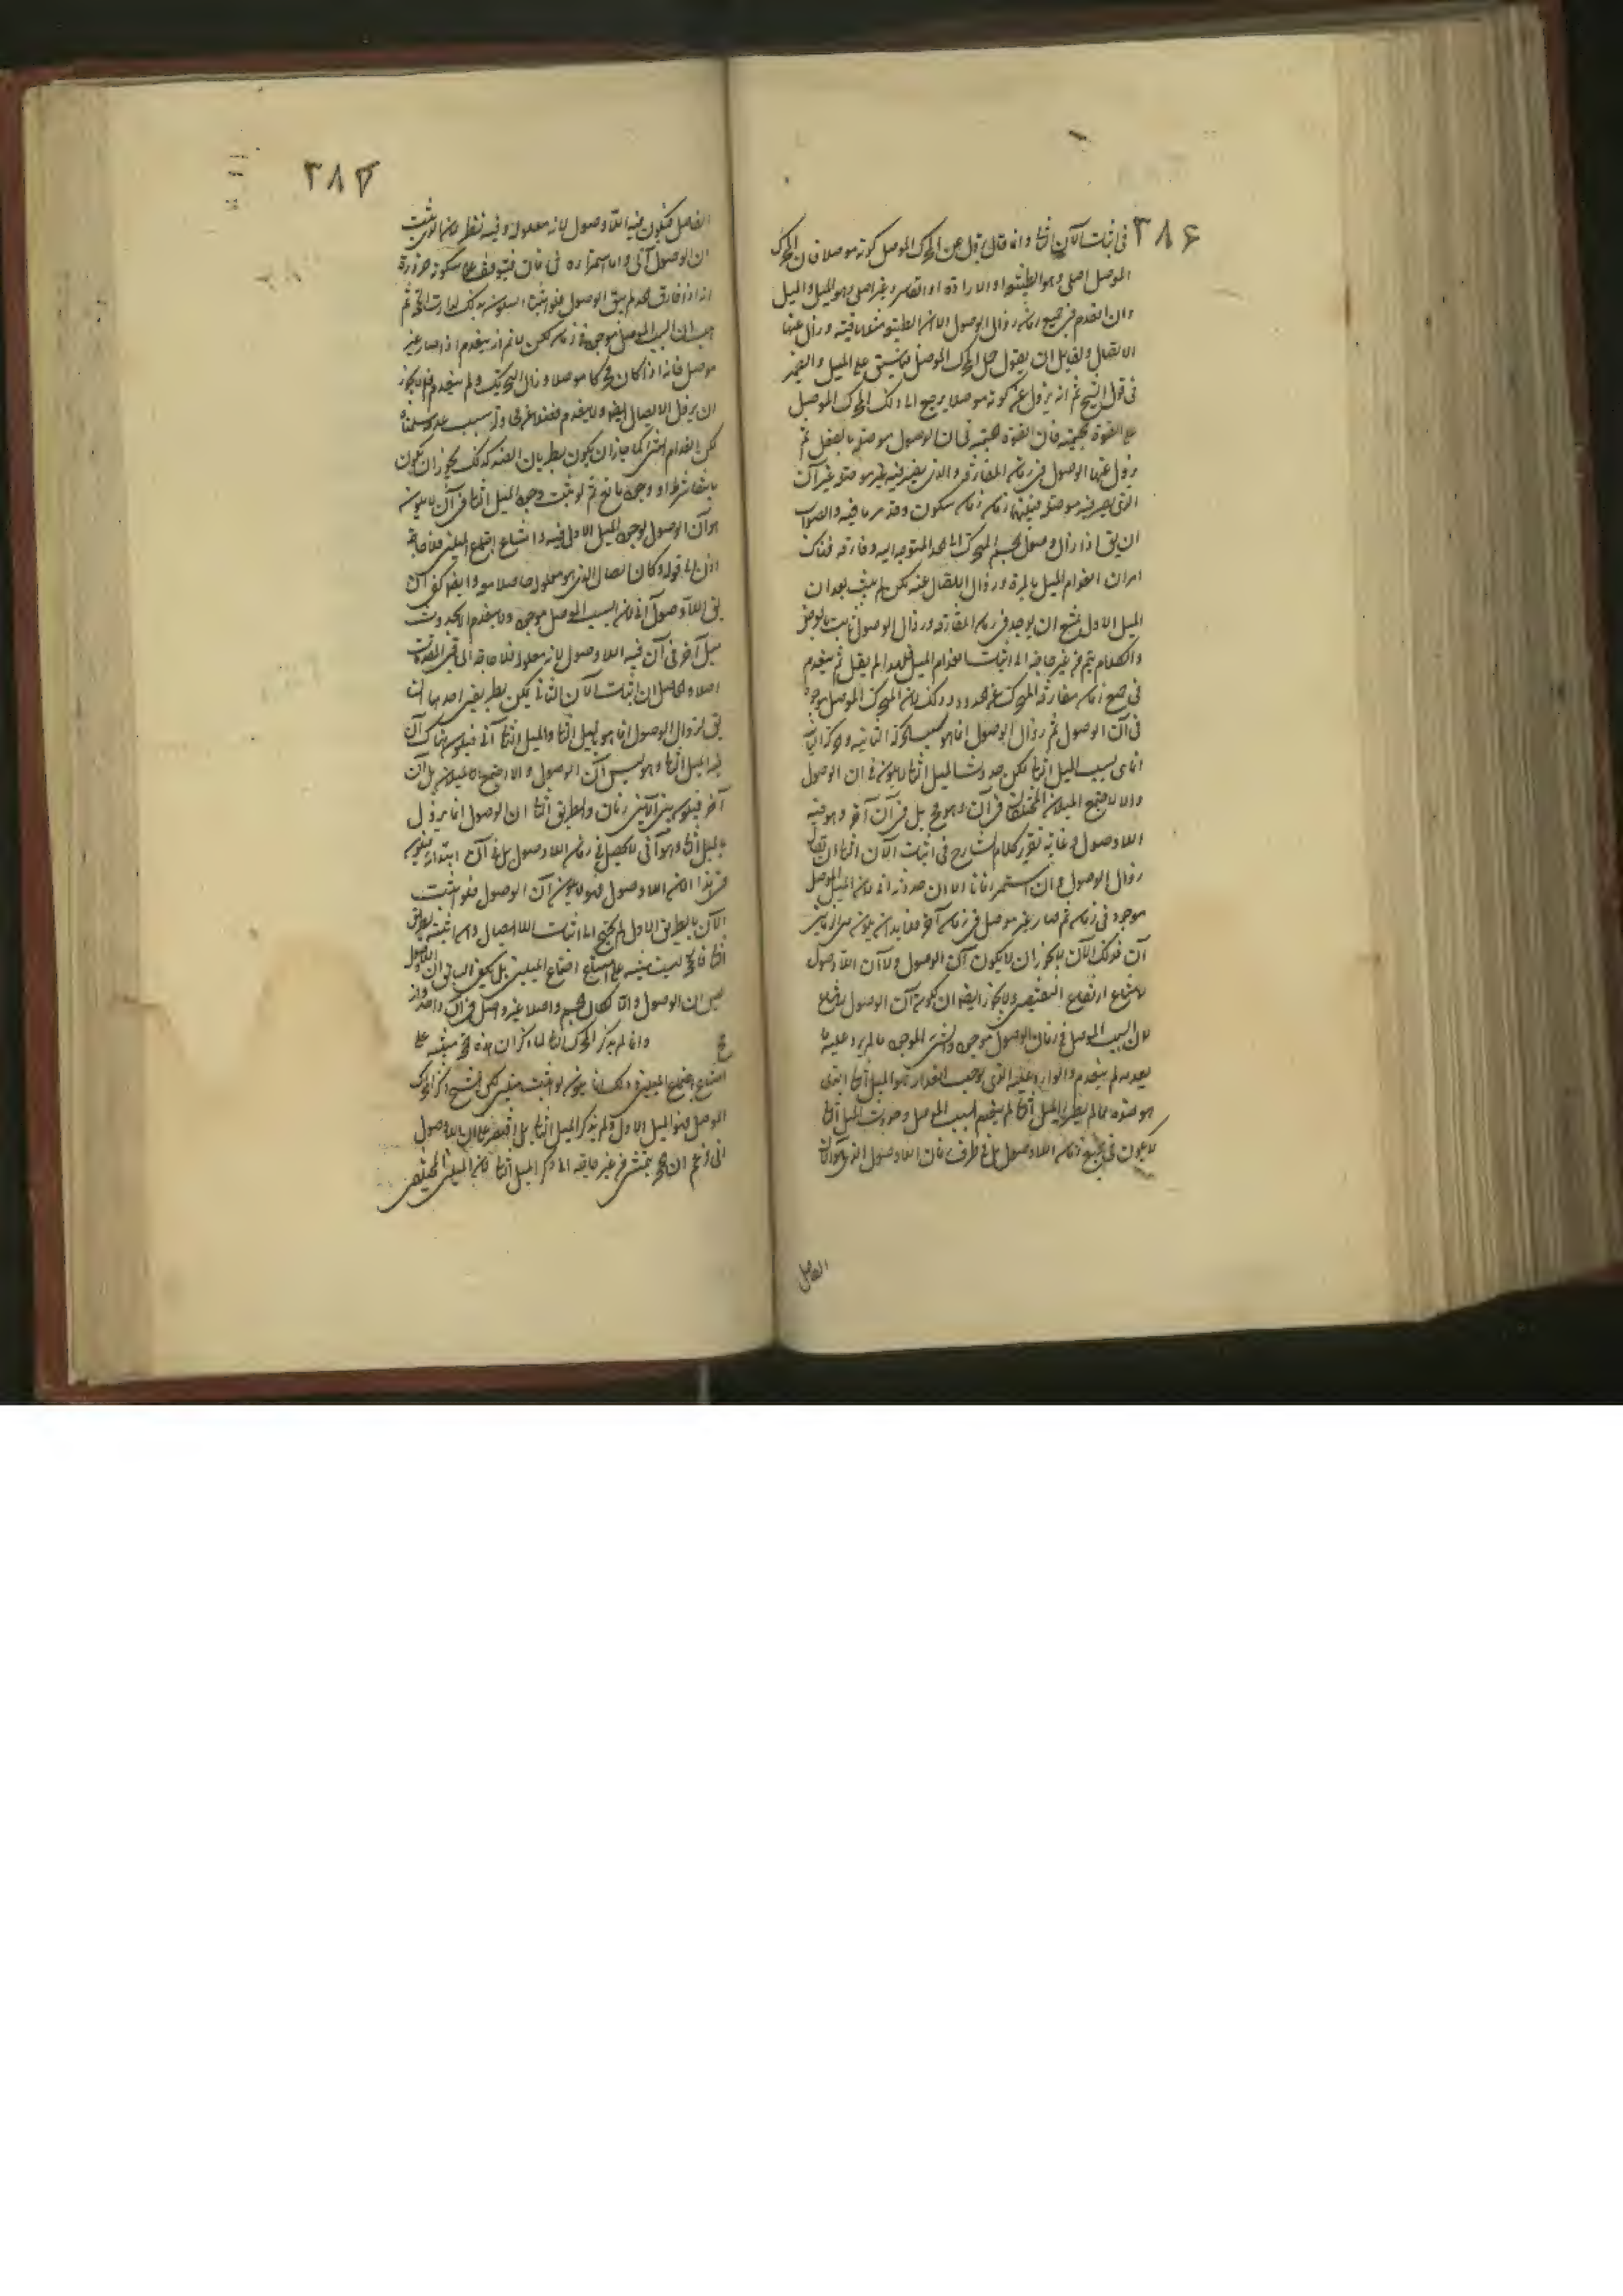 ٣٨۶
فى اثبات الآن الثانى وانما قال يزول عن المحرك الموصل كونه موصلا فان المحرك
الموصل اصلى وهو الطبيعة او الارادة او القاسر وغير اصلى وهو الميل والميل
وان انعدم فى جميع زمان زوال الوصول الا ان الطبيعة باقية وزال عنها
الايصال ولقايل ان يقول حمل المحرك الموصل على الميل والضمير
فى قول الشيخ ثم انه يزول عنه كونه موصلا يرجع الى ذلك المحرك الموصل
فان القوة فى ان الوصول موصلة بالفعل ثم
يزول عنها الوصول فى زمان المفارقة والذى يصير فيه غير موصلة غير آن
الذى يصير فيه موصلة فبينهما زمان زمان سكون وقد مر ما فيه والصواب
ان يق اذا زال وصول الجسم المتحرك الى الحد المتوجه اليه وفارقه فهناك
امران انعدام الميل بالمرة وزوال الايصال عنه لكن لم يثبت بعد ان
الميل الاول يمتنع ان يوجد فى زمان المفارقة وزوال الوصول ثابت
والكلام يتم من غير حاجة الى اثبات انعدام الميل فلهذا لم يقل ثم ينعدم
فى جميع زمان مفارقة المتحرك عن الحدود وذلك لان المحرك الموصل موجود
فى آن الوصول ثم زوال الوصول انما هو بسبب الحركة الثانية والحركة الثانية
انما هى بسبب الميل الثانى لكن حدوث الميل الثانى لا يكون فى ان الوصول
والا لاجتمع الميلان المختلفان فى آن وهو مح بل فى آن آخر وهو فيه
اللاوصول وغاية تقرير كلام الشارح فى اثبات الآن الثانى ان يقال
زوال الوصول وان استمر زمانا الا ان حدوثه انى لان الميل الموصل
موجود فى زمان ثم صار غير موصل فى زمان آخر فلا بد ان يكون بين الزمانين
آن فذلك الآن لا يجوز ان لا يكون آن الوصول ولا آن اللاوصول
لامتناع ارتفاع النقيضين ولا يجوز ايضا ان يكون آن الوصول
لان السبب الموصل فى زمان الوصول موجود والشىء الموجود ما لم يرد عليه ما
يعدمه لم ينعدم والوارد عليه الذى يوجب انعدامه هو الميل الثانى الذى
هو ضده فما لم يطرأ الميل الثانى لم ينعدم السبب الموصل وحدوث الميل الثانى
لا يكون فى جميع زمان اللاوصول بل فى طرف زمان اللاوصول الذى هو الآن
الفاصل
٣٨٧
الفاصل فيكون فيه اللاوصول لانه معلوله وفيه نظر لانا
ان الوصول آنى واما استمراره فى زمان فيتوقف على سكونه ضرورة
انه اذا فارق الحد لم يبق الوصول فلو اثبتنا السكون بذلك لدارت الحجة ثم
هب ان السبب الموصل موجود فى زمان لكن لا نم انه ينعدم اذا صار غير
موصل فانه اذا كان محركا موصلا وزال التحريك ولم ينعدم فلم لا يجوز
ان يزول الايصال ايضا ولا ينعدم سلمناه
لكن انعدام الشىء كما جاز ان يكون بطريان الضد كذلك يجوز ان يكون
بانتفاء شرط او وجود مانع ثم لو ثبت وجود الميل الثانى فى آن لا يكون
هو آن الوصول لوجود الميل الاول فيه وامتناع اجتماع الميلين فلا حاجة
اذن الى قوله وكان ايصال الذى هو معلوله حاصلا معه وايضا كفى ان
يق اللاوصول آنى لان السبب الموصل موجود ولا ينعدم الا بحدوث
ميل آخر فى آن فيه اللاوصول لانه معلوله فلا حاجة الى باقى المقدمات
اصلا والحاصل ان اثبات الآن الثانى يمكن بطريقين احدهما ان
يق زوال الوصول انما هو بالميل الثانى والميل الثانى آنى فيكون هناك آن
فيه الميل الثانى وهو ليس آن الوصول والا اجتمع الميلان بل آن
آخر فيكون بين الآنين زمان والطريق الثانى ان الوصول انما يزول
بالميل الثانى وهو آنى لا يحصل فى زمان اللاوصول بل فى آن ابتدائه فيكون
فى هذا الآن اللاوصول فهو لا يكون آن الوصول فلو اثبت
الآن بالطريق الاول لم يحتج الى اثبات اللاايصال وان اثبته بالطريق
الثانى فالحجة ليست مبنية على امتناع اجتماع الميلين بل يكفى البيان ان آن اللاوصول
ليس ان الوصول والا لكان الجسم واصلا غير واصل فى آن واحد وانه
مح وانما لم يذكر المحرك الثانى لما ذكر ان هذه الحجة مبنية على
امتناع اجتماع الميلين وذلك انما يكون لو اثبت ميلين لكن الشيخ ذكر المحرك
الموصل فهو الميل الاول ولم يذكر الميل الثانى بل اقتصر على ان اللاوصول
انى زعم ان الحجة يتمشى من غير حاجة الى ذكر الميل الثانى لان الميلين المختلفين